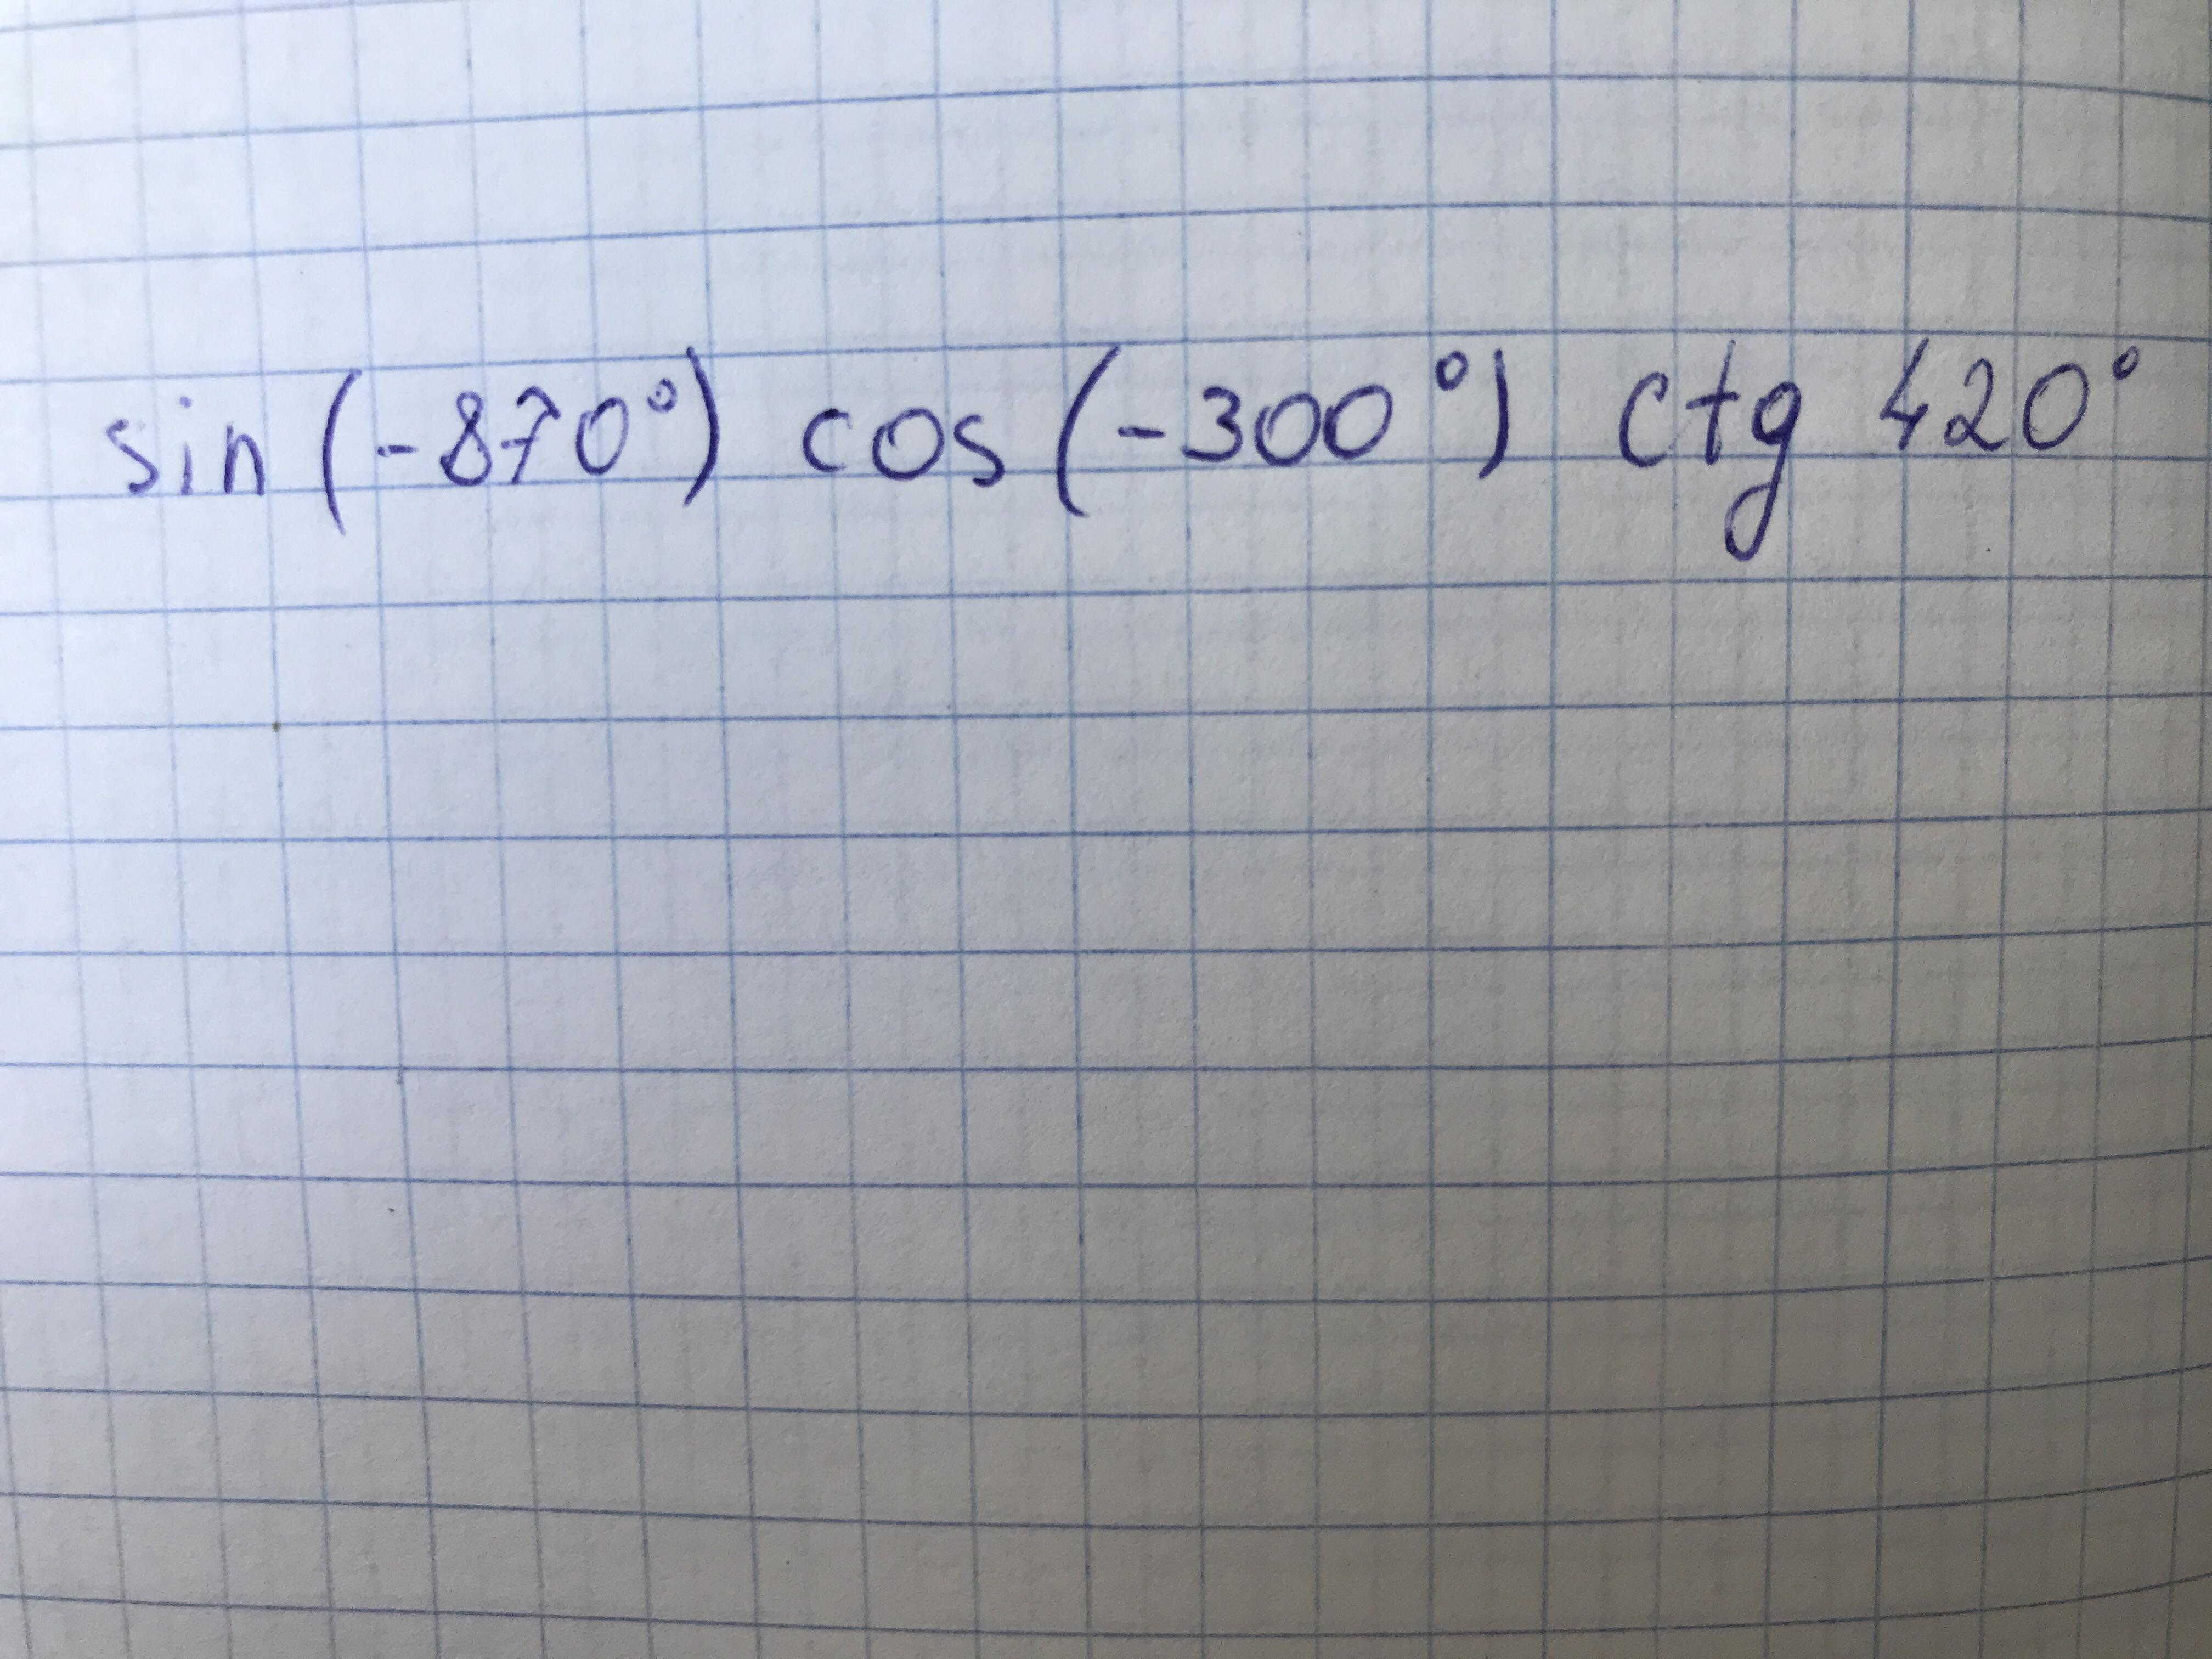 sin (-870°) cos (-300°) ctg 420°